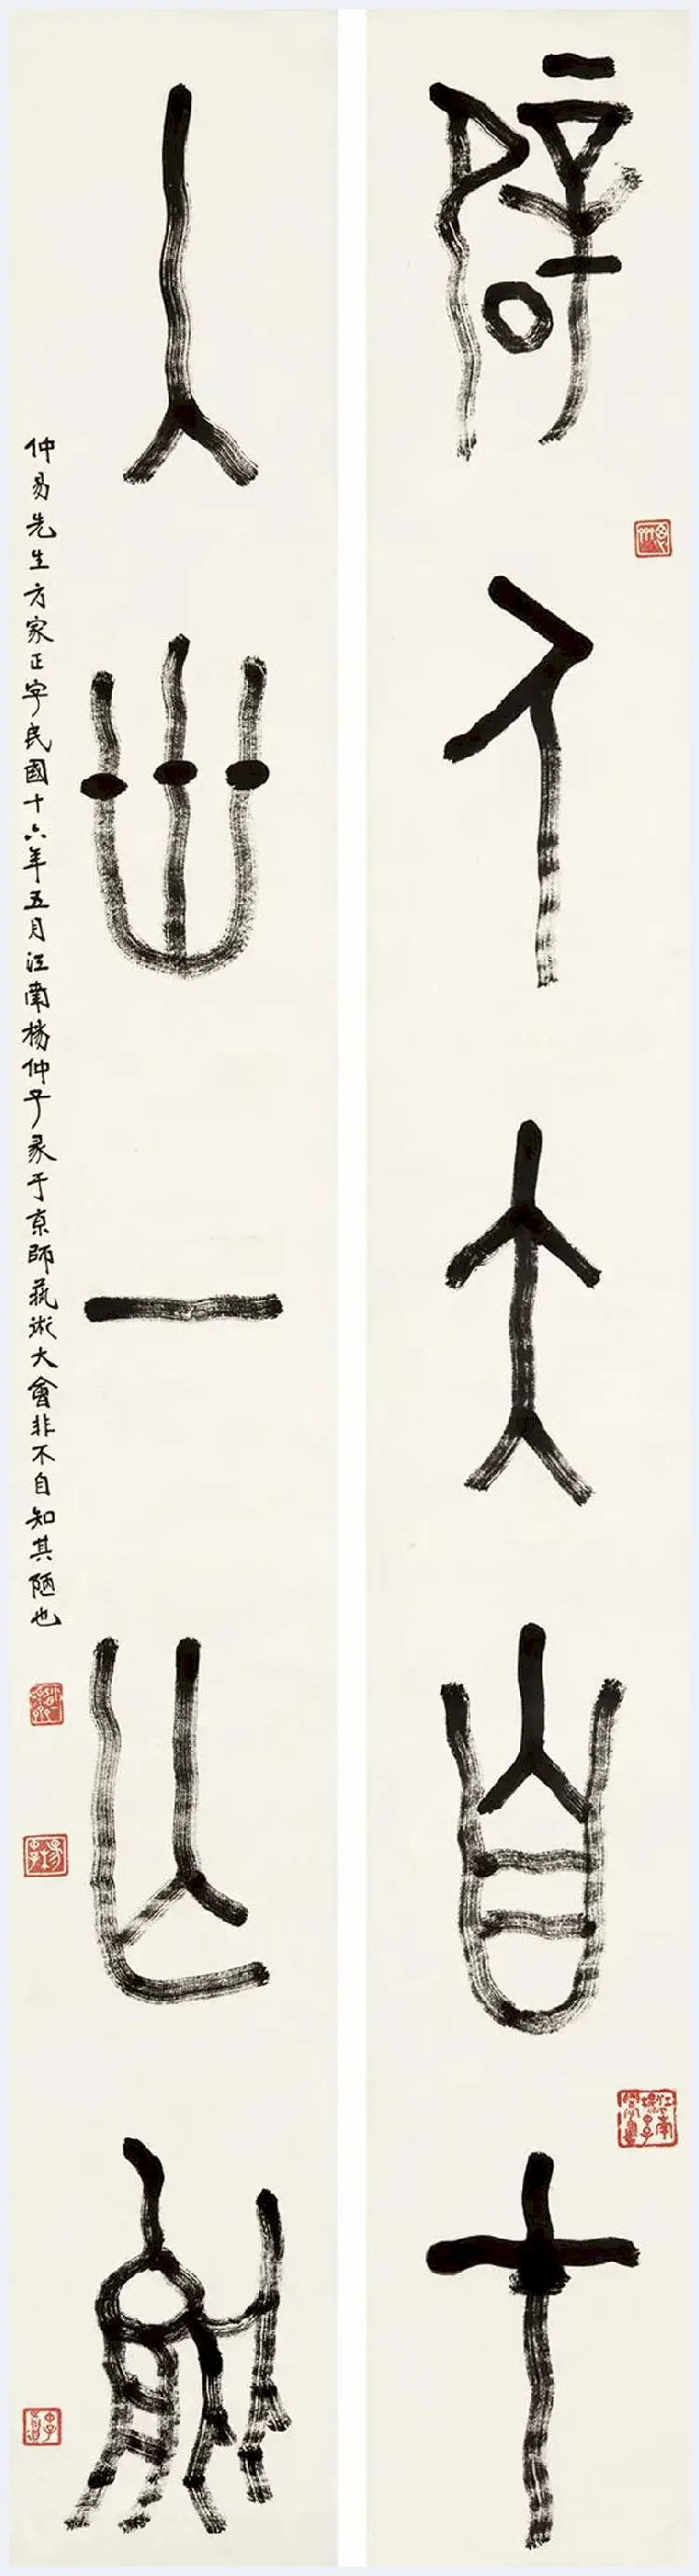 倚人大自在
入世一亡能
仲易先生方家正字民國十六年五月江南楊仲子篆于京師藝術大會非不自知其陋也